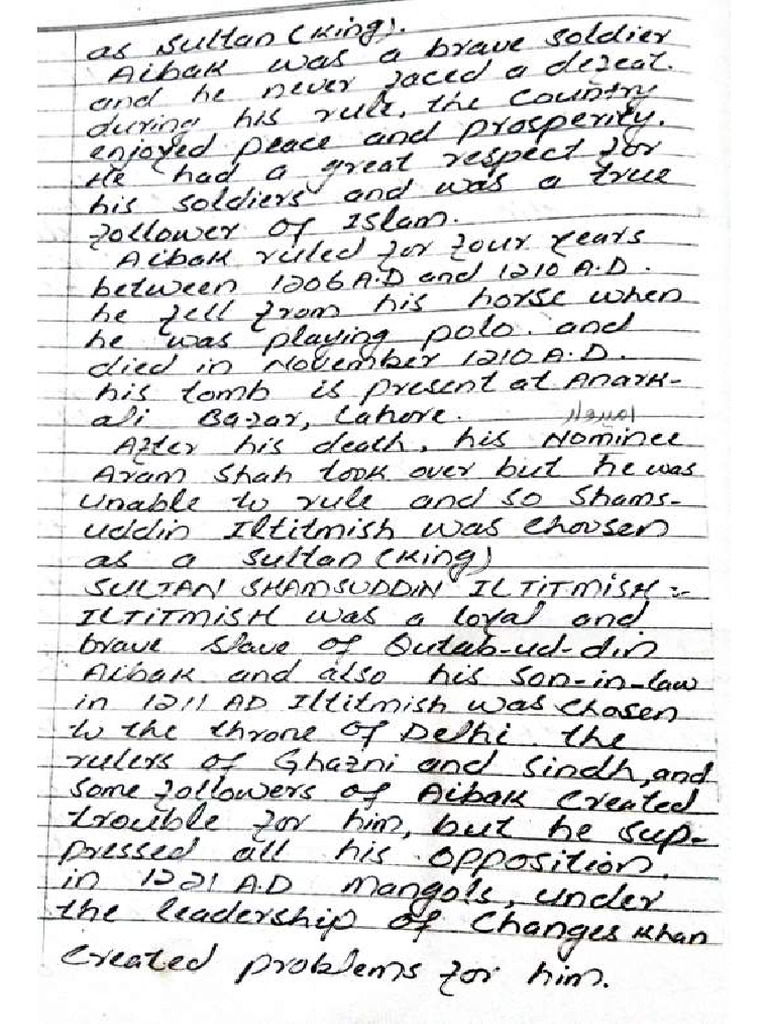 as Sultan (King).
Aibak was a brave soldier
and he never faced a defeat.
during his rule, the Country
enjoyed peace and prosperity.
He had a great respect for
his soldiers and was a true
follower of Islam.
Aibak ruled for four years
between 1206 A.D and 1210 A.D.
he fell from his horse when
he was playing polo. and
died in November 1210 A.D.
his tomb is present at Anark-
ali Bazar, Lahore. امیدوار
After his death, his Nominee
Aram Shah took over but he was
unable to rule and so Shams-
uddin Iltitmish was choosen
as a Sultan (King)
SULTAN SHAMSUDDIN ILTITMISH :-
ILTITMISH was a loyal and
brave slave of Qutab-ud-din
Aibak and also his son-in-law
in 1211 AD Iltitmish was chosen
to the throne of Delhi. the
rulers of Ghazni and Sindh, and
some followers of Aibak created
trouble for him, but he sup-
pressed all his opposition.
in 1221 A.D Mangols, under
the leadership of Changes Khan
created problems for him.